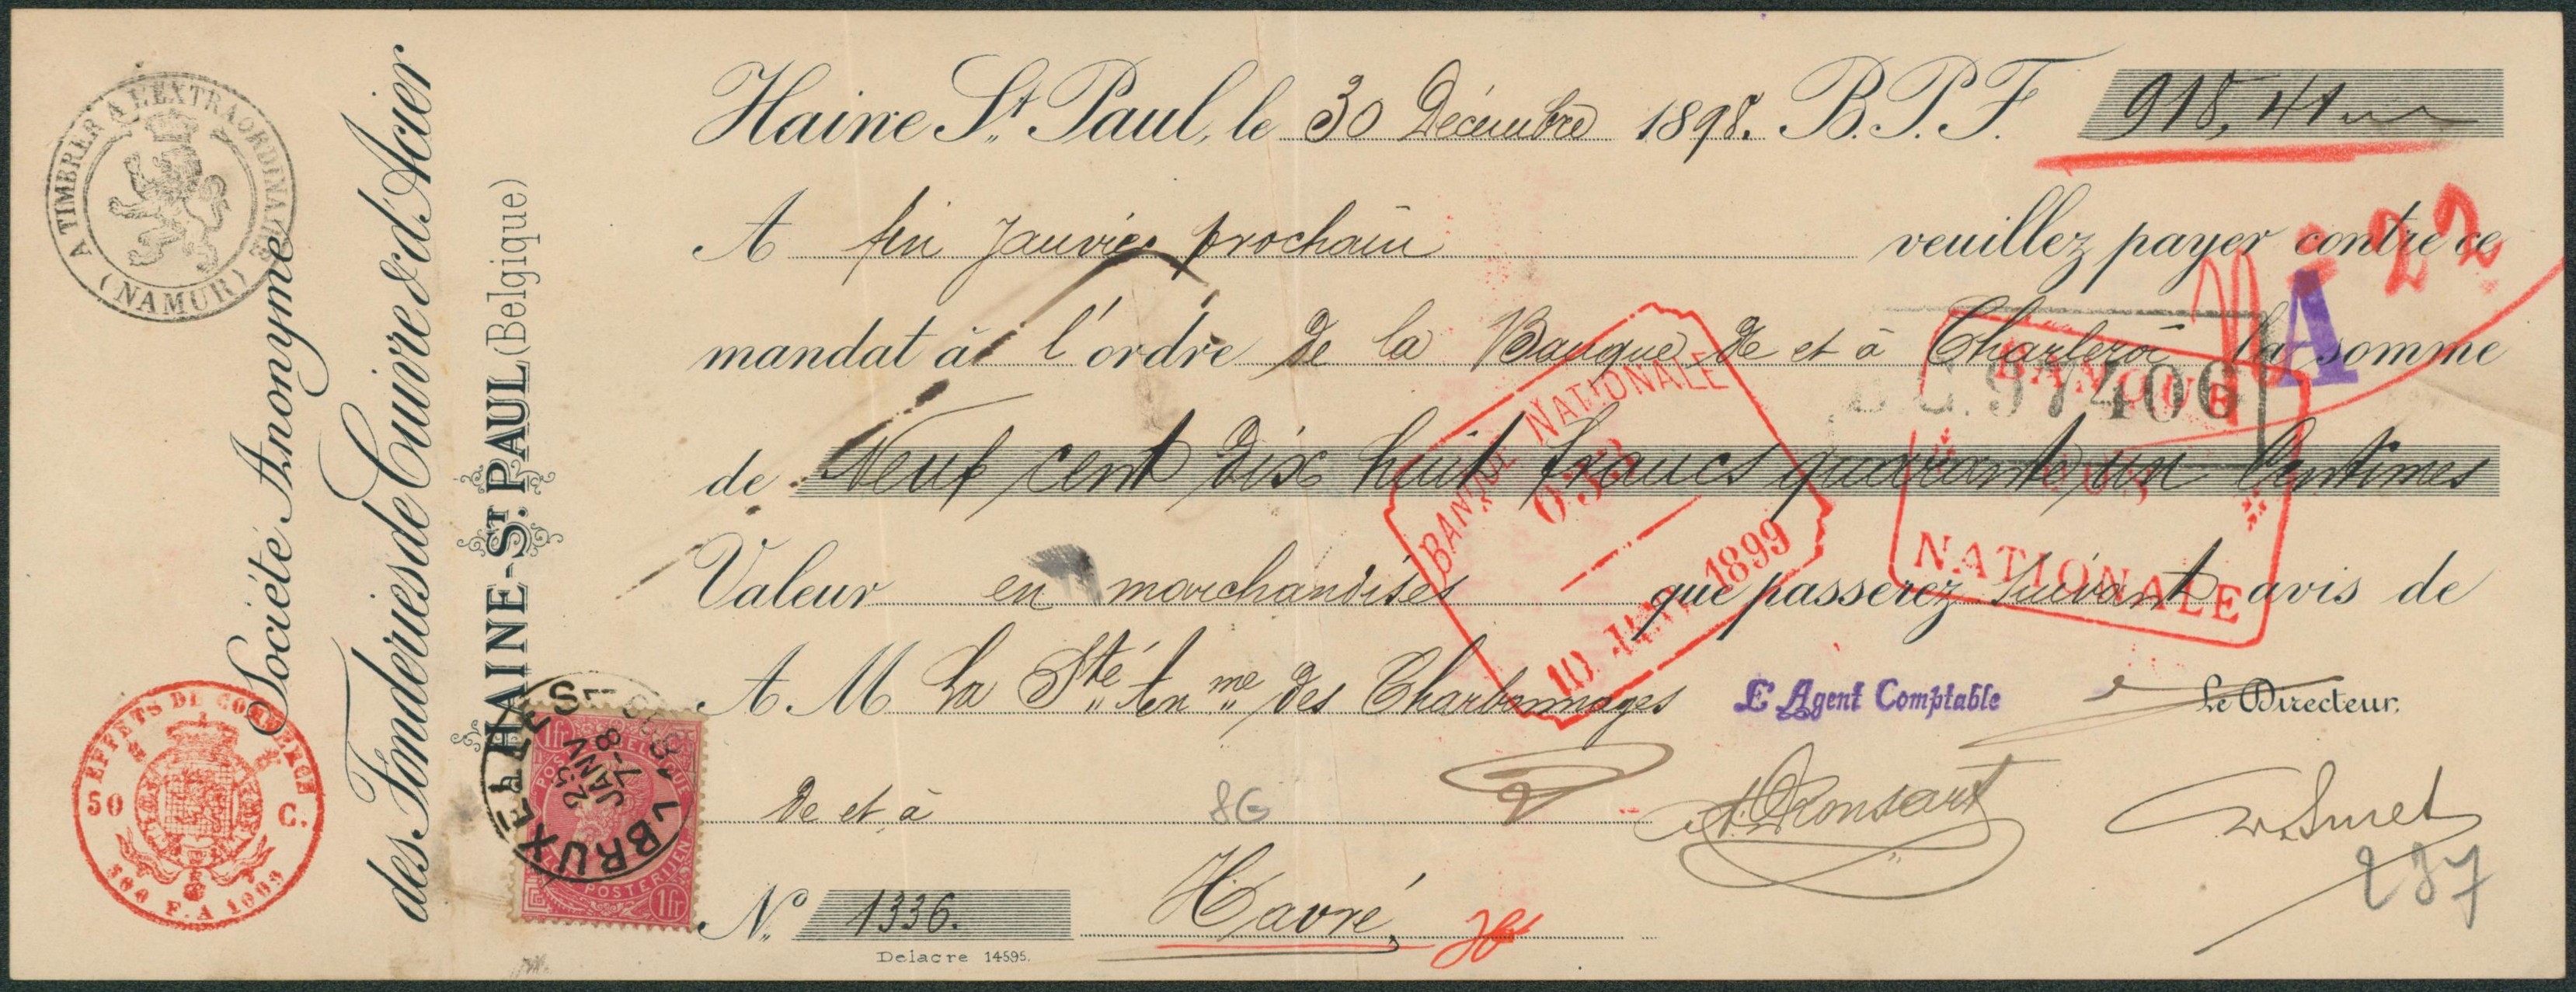 A TIMBRER A L'EXTRAORDINAIRE
(NAMUR)
Société Anonyme
des Fonderies de Cuivre & d'Acier
HAINE-ST. PAUL (Belgique)
EFFETS DE COMMERCE
50 C.
500 F. A 1000
Haine St. Paul, le 30 Décembre 1898. B.P.F. 918,41
A fin Janvier prochain veuillez payer contre ce
mandat à l'ordre de la Banque de et à Charleroi la somme
de Neuf cent dix huit francs quarante un Centimes
Valeur en marchandises que passerez suivant avis de
A M La Sté An me des Charbonnages
L'Agent Comptable
Le Directeur,
de et à
8G
N° 1336. Havré,
Delacre 14595.
237
A
97406
BANQUE NATIONALE
10 JANV 1899
BANQUE
NATIONALE
BRUXELLES
23 JANV
7-8
1 fr
POSTERIJEN
1 fr